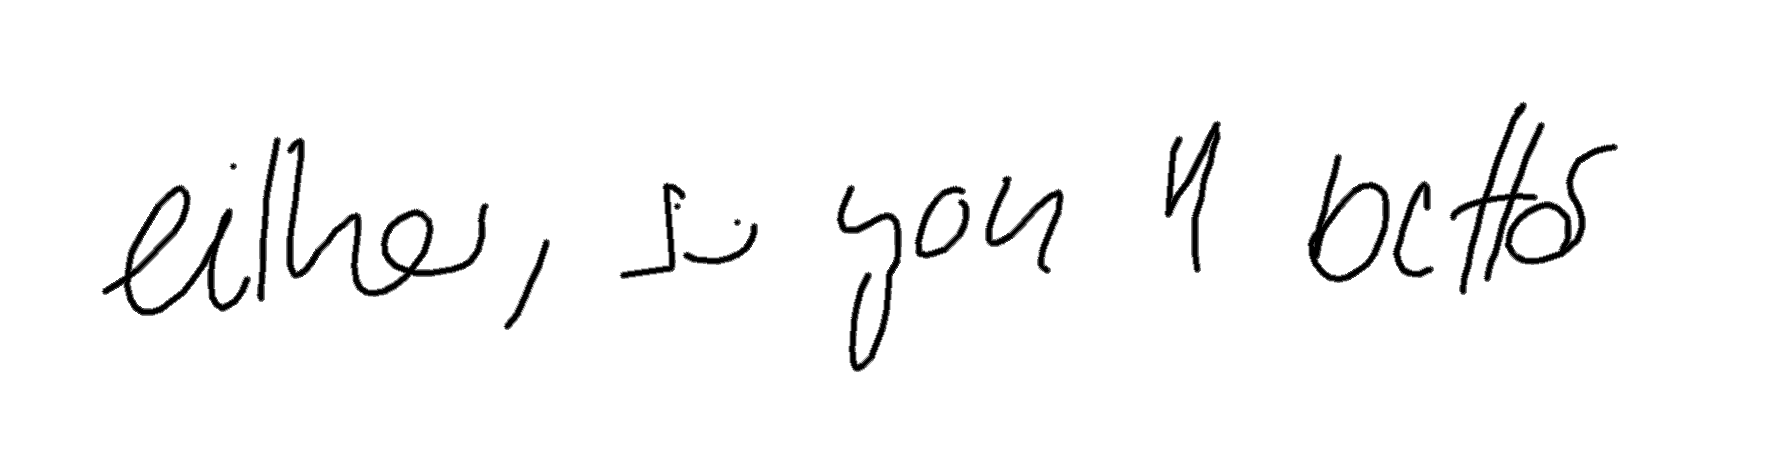 either, you better